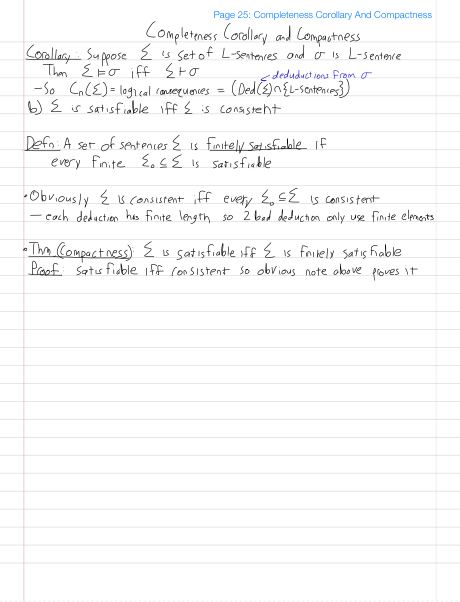 Page 25: Completeness Corollary And Compactness
Completeness Corollary and Compactness
Corollary: Suppose Σ is set of L-sentences and σ is L-sentence
Then Σ ⊨ σ iff Σ ⊢ σ
deduductions from σ
- So Cn(Σ) = logical consequences = (Ded(Σ) ∩ {L-sentences})
b) Σ is satisfiable iff Σ is consistent
Defn: A set of sentences Σ is finitely satisfiable if
every finite Σ₀ ⊆ Σ is satisfiable
• Obviously Σ is consistent iff every Σ₀ ⊆ Σ is consistent
- each deduction has finite length, so 2 bad deduction only use finite elements
• Thm (Compactness): Σ is satisfiable iff Σ is finitely satisfiable
Proof: satisfiable iff consistent so obvious note above proves it